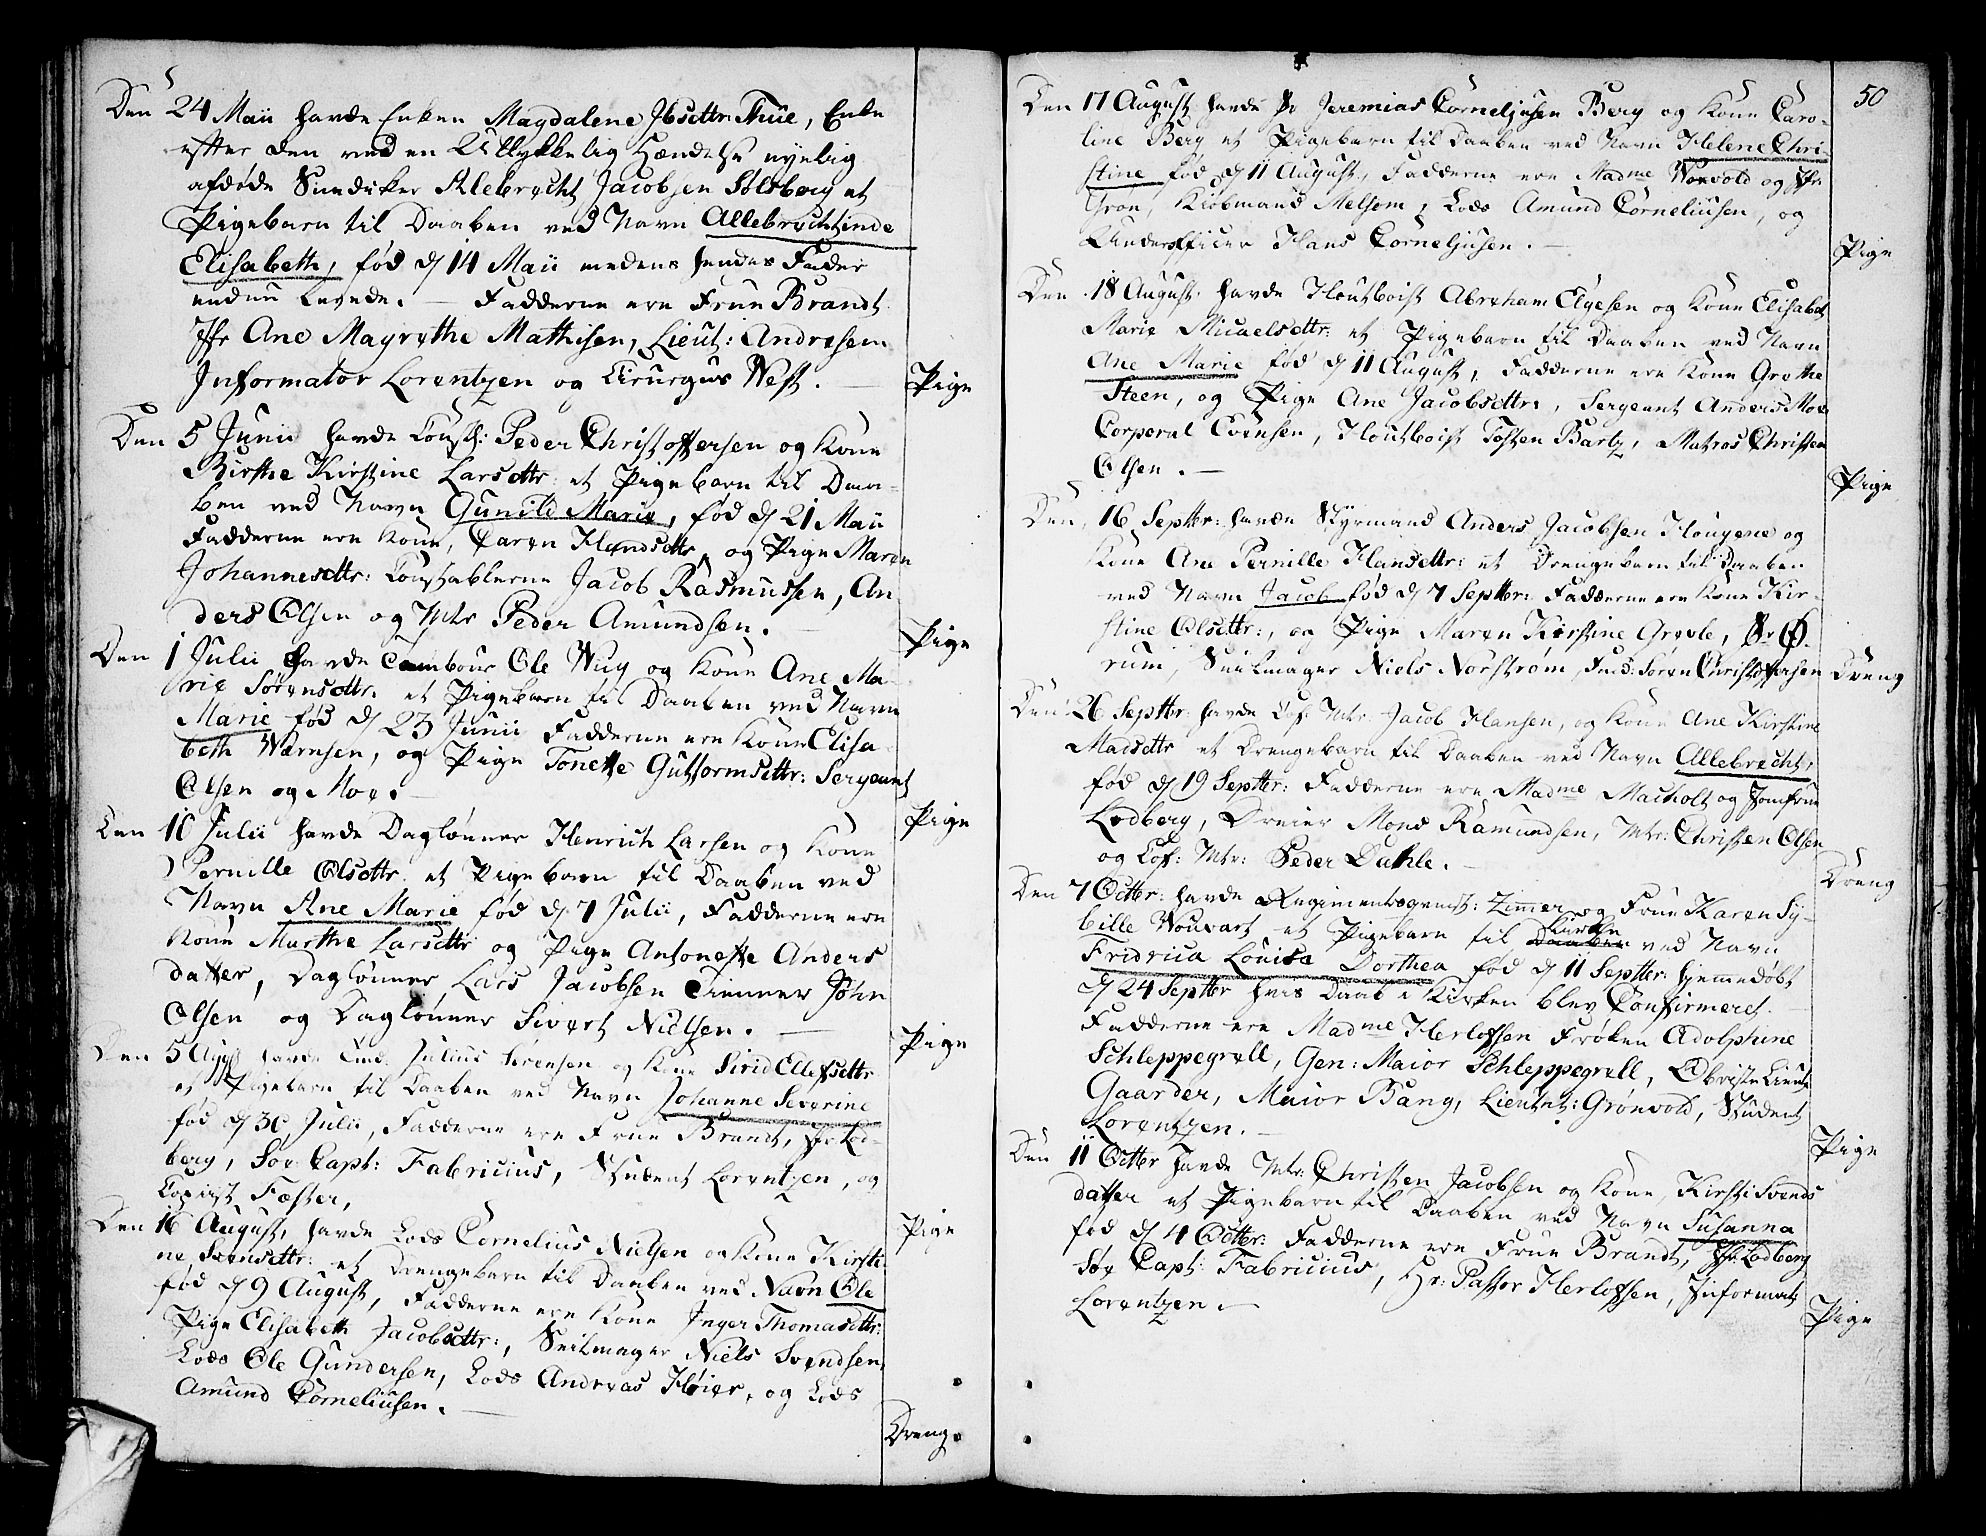 Den 24 Maii havde Enken Magdalene Ibsdttr: Thue, Enke
efter den ved en Ulykkelig Hændelse nyelig
afdøde Snediker Alebrecht Jacobsen Solsberg et
Pigebarn til Daaben ved Navn Allebrechtinde
Elisabeth, fød d 14 Maii medens hendes Fader
endnu levede. — Fadderne ere Frue Brandt
Jfr Ane Magrethe Mathisen, Lieut: Andresen
Informator Lorentzen og Cirurgus West. —
Pige
Den 5 Junii havde Const: Peder Christoffersen og Kone
Birthe Kirstine Larsdttr: et Pigebarn til Daa-
ben ved Navn Gunild Marie, fød d 21 Maii
Fadderne ere Kone, Caren Hansdttr, og Pige Maren
Johannesdttr: Constablerne Jacob Rasmussen, An
ders Olsen og Mtr Peder Amundsen. —
Pige
Den 1 Julii havde Tambour Ole Wug og Kone Ane Ma-
rie Sørensdttr. et Pigebarn til Daaben ved Navn
Marie fød d 23 Junii Fadderne ere Kone Elisa
beth Wærnsen, og Pige Tonette Guttormsdttr: Sergeant
Olsen og Moe. —
Pige
Den 10 Julii havde Daglønner Henrich Larsen og Kone
Pernille Olsdttr. et Pigebarn til Daaben ved
Navn Ane Marie fød d 7 Julii, Fadderne ere
Kone Marthe Larsdttr og Pige Antonette Anders
datter, Daglønner Lars Jacobsen Tienner John
Olsen og Daglønner Sivert Nielsen. —
Pige
Den 5 Aug havde Julius Sørensen og Kone Sirid Ellefsdttr
et Pigebarn til Daaben ved Navn Johanne Severine
fød d 30 Julii, Fadderne ere Frue Brandt, Jfr Lod-
berg, Søe Capt: Fabricius, Student Lorentzen, og
Copiist Fæster,
Pige
Den 16 August, havde Lods Cornelius Nielsen og Kone Kirsti
ne Svensdttr: et Drengebarn til Daaben ved Navn Ole
fød d 9 August, Fadderne ere Kone Inger Thomasdttr:
Pige Elisabeth Jacobsdttr:, Seilmager Niels Svendsen,
Lods Ole Gundersen, Lods Andreas Høier, og Lods
Amund Corneliusen. —
Dreng.
50
Den 17 August havde Hr Jeremias Corneljusen Berg og Kone Caro-
line Berg et Pigebarn til Daaben ved Navn Helene Chri-
stine fød d 11 August, Fadderne ere Madme Worvold og Jfr:
Gron, Kiøbmand Melsom, Lods Amund Corneliusen, og
Underofficer Hans Corneljusen. —
Pige
Den 18 August. havde Houtboist Abraham Elgesen og Kone Elisabet
Marie Micaelsdttr: et Pigebarn til Daaben ved Navn
Ane Marie fød d 11 August, Fadderne ere Kone Grethe
Steen, og Pige Ane Jacobsdttr:, Sergeant Anders Moe
Corporal Evensen, Houtboist Tosten Bartz, Matros Christen
Olsen. —
Pige
Den 16 Septbr: havde Styrmand Anders Jacobsen Hougene og
Kone Ane Pernille Hansdttr: et Drengebarn til Daaben
ved Navn Jacob fød d 7 Septbr: Fadderne ere Kone Kir-
stine Olsdttr:, og Pige Maren Kirstine Grevle, Hr Ø-
rum, Seilmager Niels Norstrøm, Søren Christoffersen
Dreng
Den 26 Septbr: havde Mtr. Jacob Hansen, og Kone Ane Kirstine
Madsdttr et Drengebarn til Daaben ved Navn Allebrecht,
fød d 19 Septbr: Fadderne ere Madme Macholt og Jomfrue
Lodberg, Dreier Mons Ramundsen, Mtr: Christen Olsen
og Mtr: Peder Dahle. —
Dreng
Den 7 Octbr: havde Regimentsqvart: Zimmer og Frue Karen Sy-
bille Wouvart et Pigebarn til Kirke ved Navn
Fridrica Louisa Dorthea fød d 11 Septbr: hjemmedøbt
d 24 Septbr hvis Daab i Kirken blev Confirmeret. —
Fadderne ere Madme Herlofsen Frøken Adolphine
Schleppegrell, Gen: Maior Schleppegrell, Obriste Lieut
Gaarder, Maior Bang, Lieutnt: Grønvold, Student
Lorentzen. —
Pige
Den 11 Octbr havde Mtr: Christen Jacobsen og Kone, Kirsti Svends
datter et Pigebarn til Daaben ved Navn Susanna
fød d 4 Octbr: Fadderne ere Frue Brandt, Jfr: Lodberg
Søe Capt: Fabricius, Hr: Pastor Herlofsen, Informator
Lorentzen. —
Pige